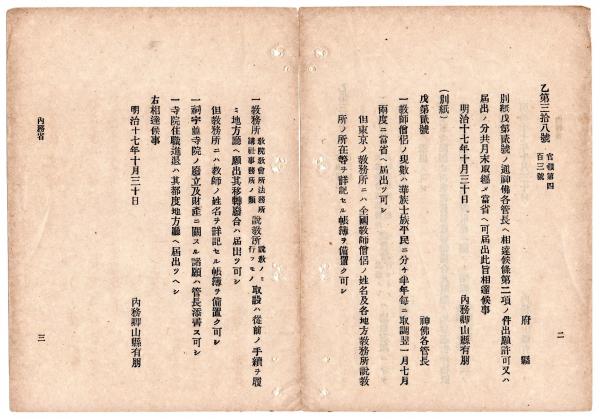 乙第三拾八號 官報第四百三號
府縣
別紙戊第貳號ノ通神佛各管長ヘ相達候條第二項ノ件出願許可又ハ
届出ノ分共月末取纏メ當省ヘ可届出此旨相達候事
明治十七年十月三十日 內務卿山縣有朋
(別紙)
戊第貳號 神佛各管長
一教師僧侶ノ現數ハ華族士族平民ニ分ケ半年每ニ取調翌一月七月
兩度ニ當省ヘ届出ツ可シ
但東京ノ敎務所ニハ全國敎師僧侶ノ姓名及各地方敎務所說敎
所ノ所在等ヲ詳記セル帳簿ヲ備置ク可シ
二
一敎務所 敎院敎會所法務所講社事務所ノ類 說敎所 說敎ノミ行フモノ 取設ハ從前ノ手續ヲ履
ミ地方廳ヘ願出其移轉廢合ハ届出ツ可シ
但敎務所ニハ敎師ノ姓名ヲ詳記セル帳簿ヲ備置ク可シ
一祠宇並寺院ノ廢立及財產ニ關スル諸願ハ管長添書ス可シ
一寺院住職進退ハ其都度地方廳ヘ届出ツヘシ
右相達候事
明治十七年十月三十日 內務卿山縣有朋
內務省 三